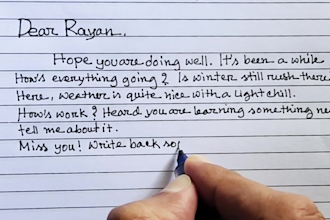 Dear Rayan,
Hope you are doing well. It's been a while
How's everything going? Is winter still rush there
Here, weather is quite nice with a light chill.
How's work? Heard you are learning something ne
tell me about it.
Miss you! Write back so